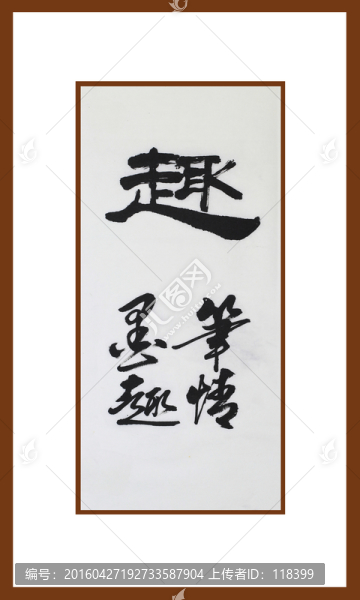 趣
筆情
墨趣
汇图网
编号：20160427192733587904 上传者ID：118399